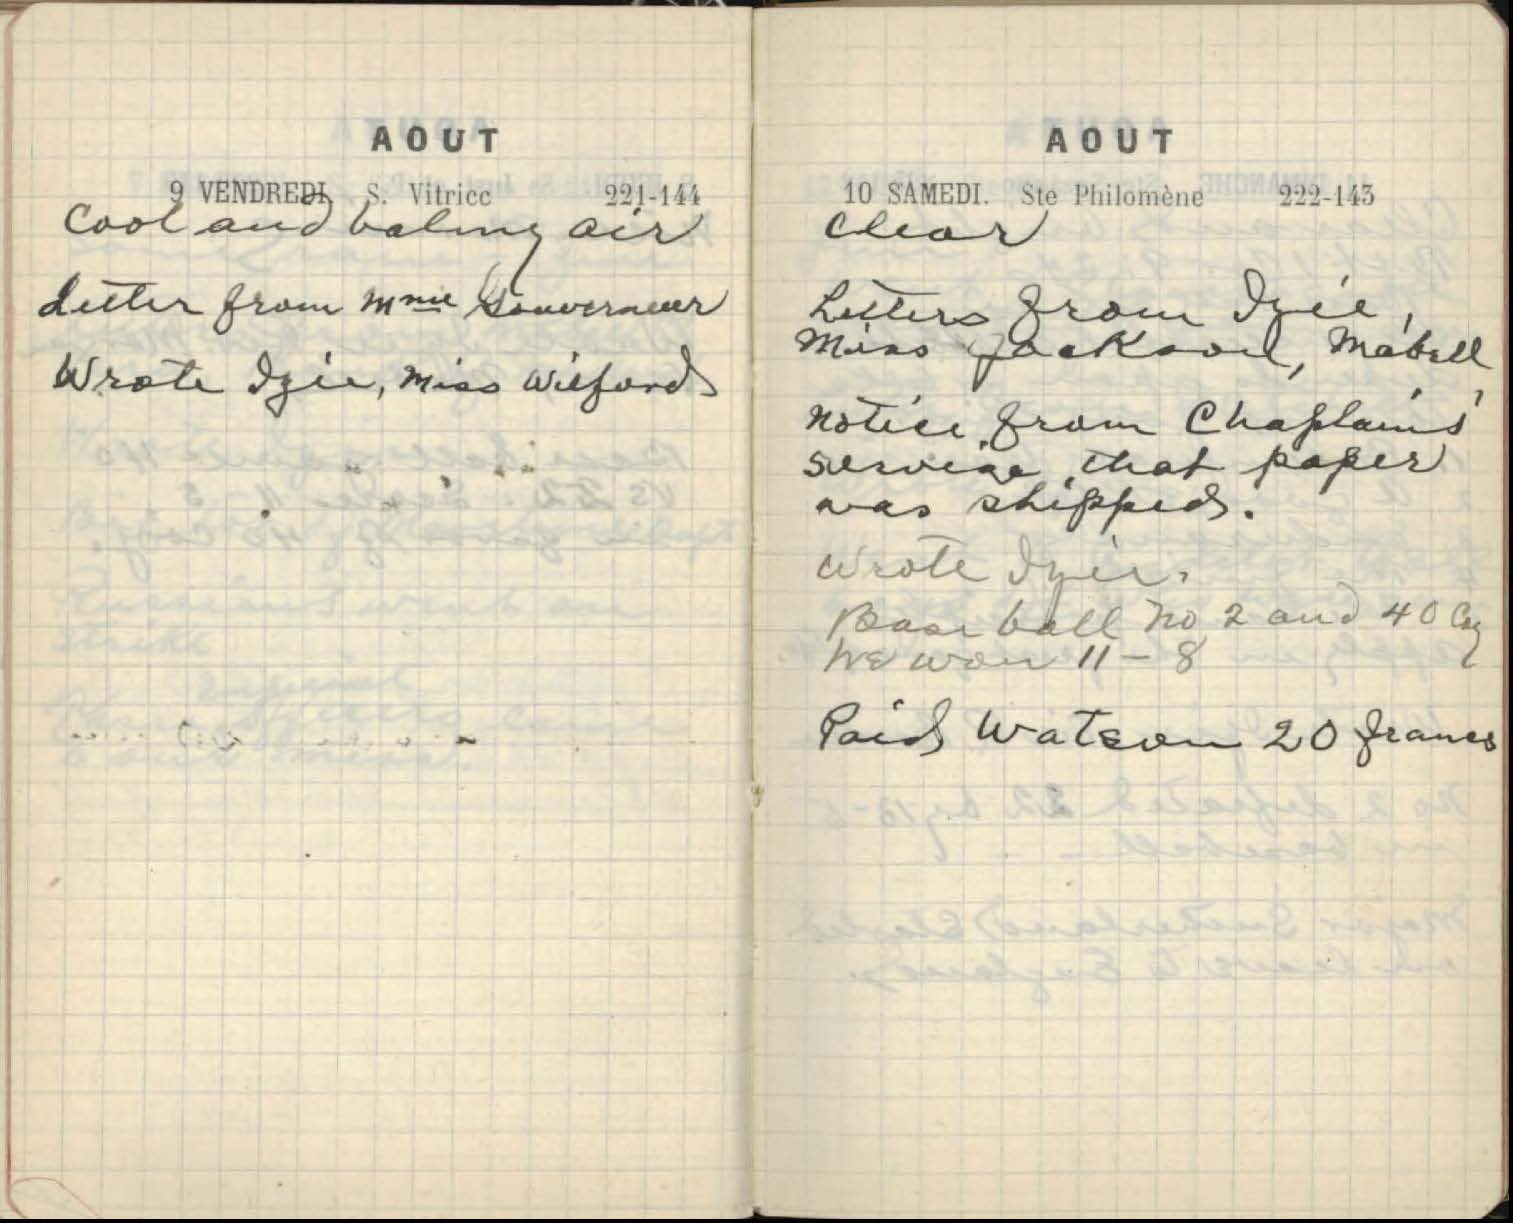 AOUT
9 VENDREDI S. Vitrice 221-144
Cool and balmy air
Letter from Mme Gouverneur
Wrote Izie, Miss Wilford
AOUT
10 SAMEDI. Ste Philomène 222-143
Clear
Letters from Izie,
Miss Jackson, Mabell
Notice from Chaplains'
service that paper
was shipped.
Wrote Izie.
Base ball No 2 and 40 Coy
We won 11-8
Paid Watson 20 francs